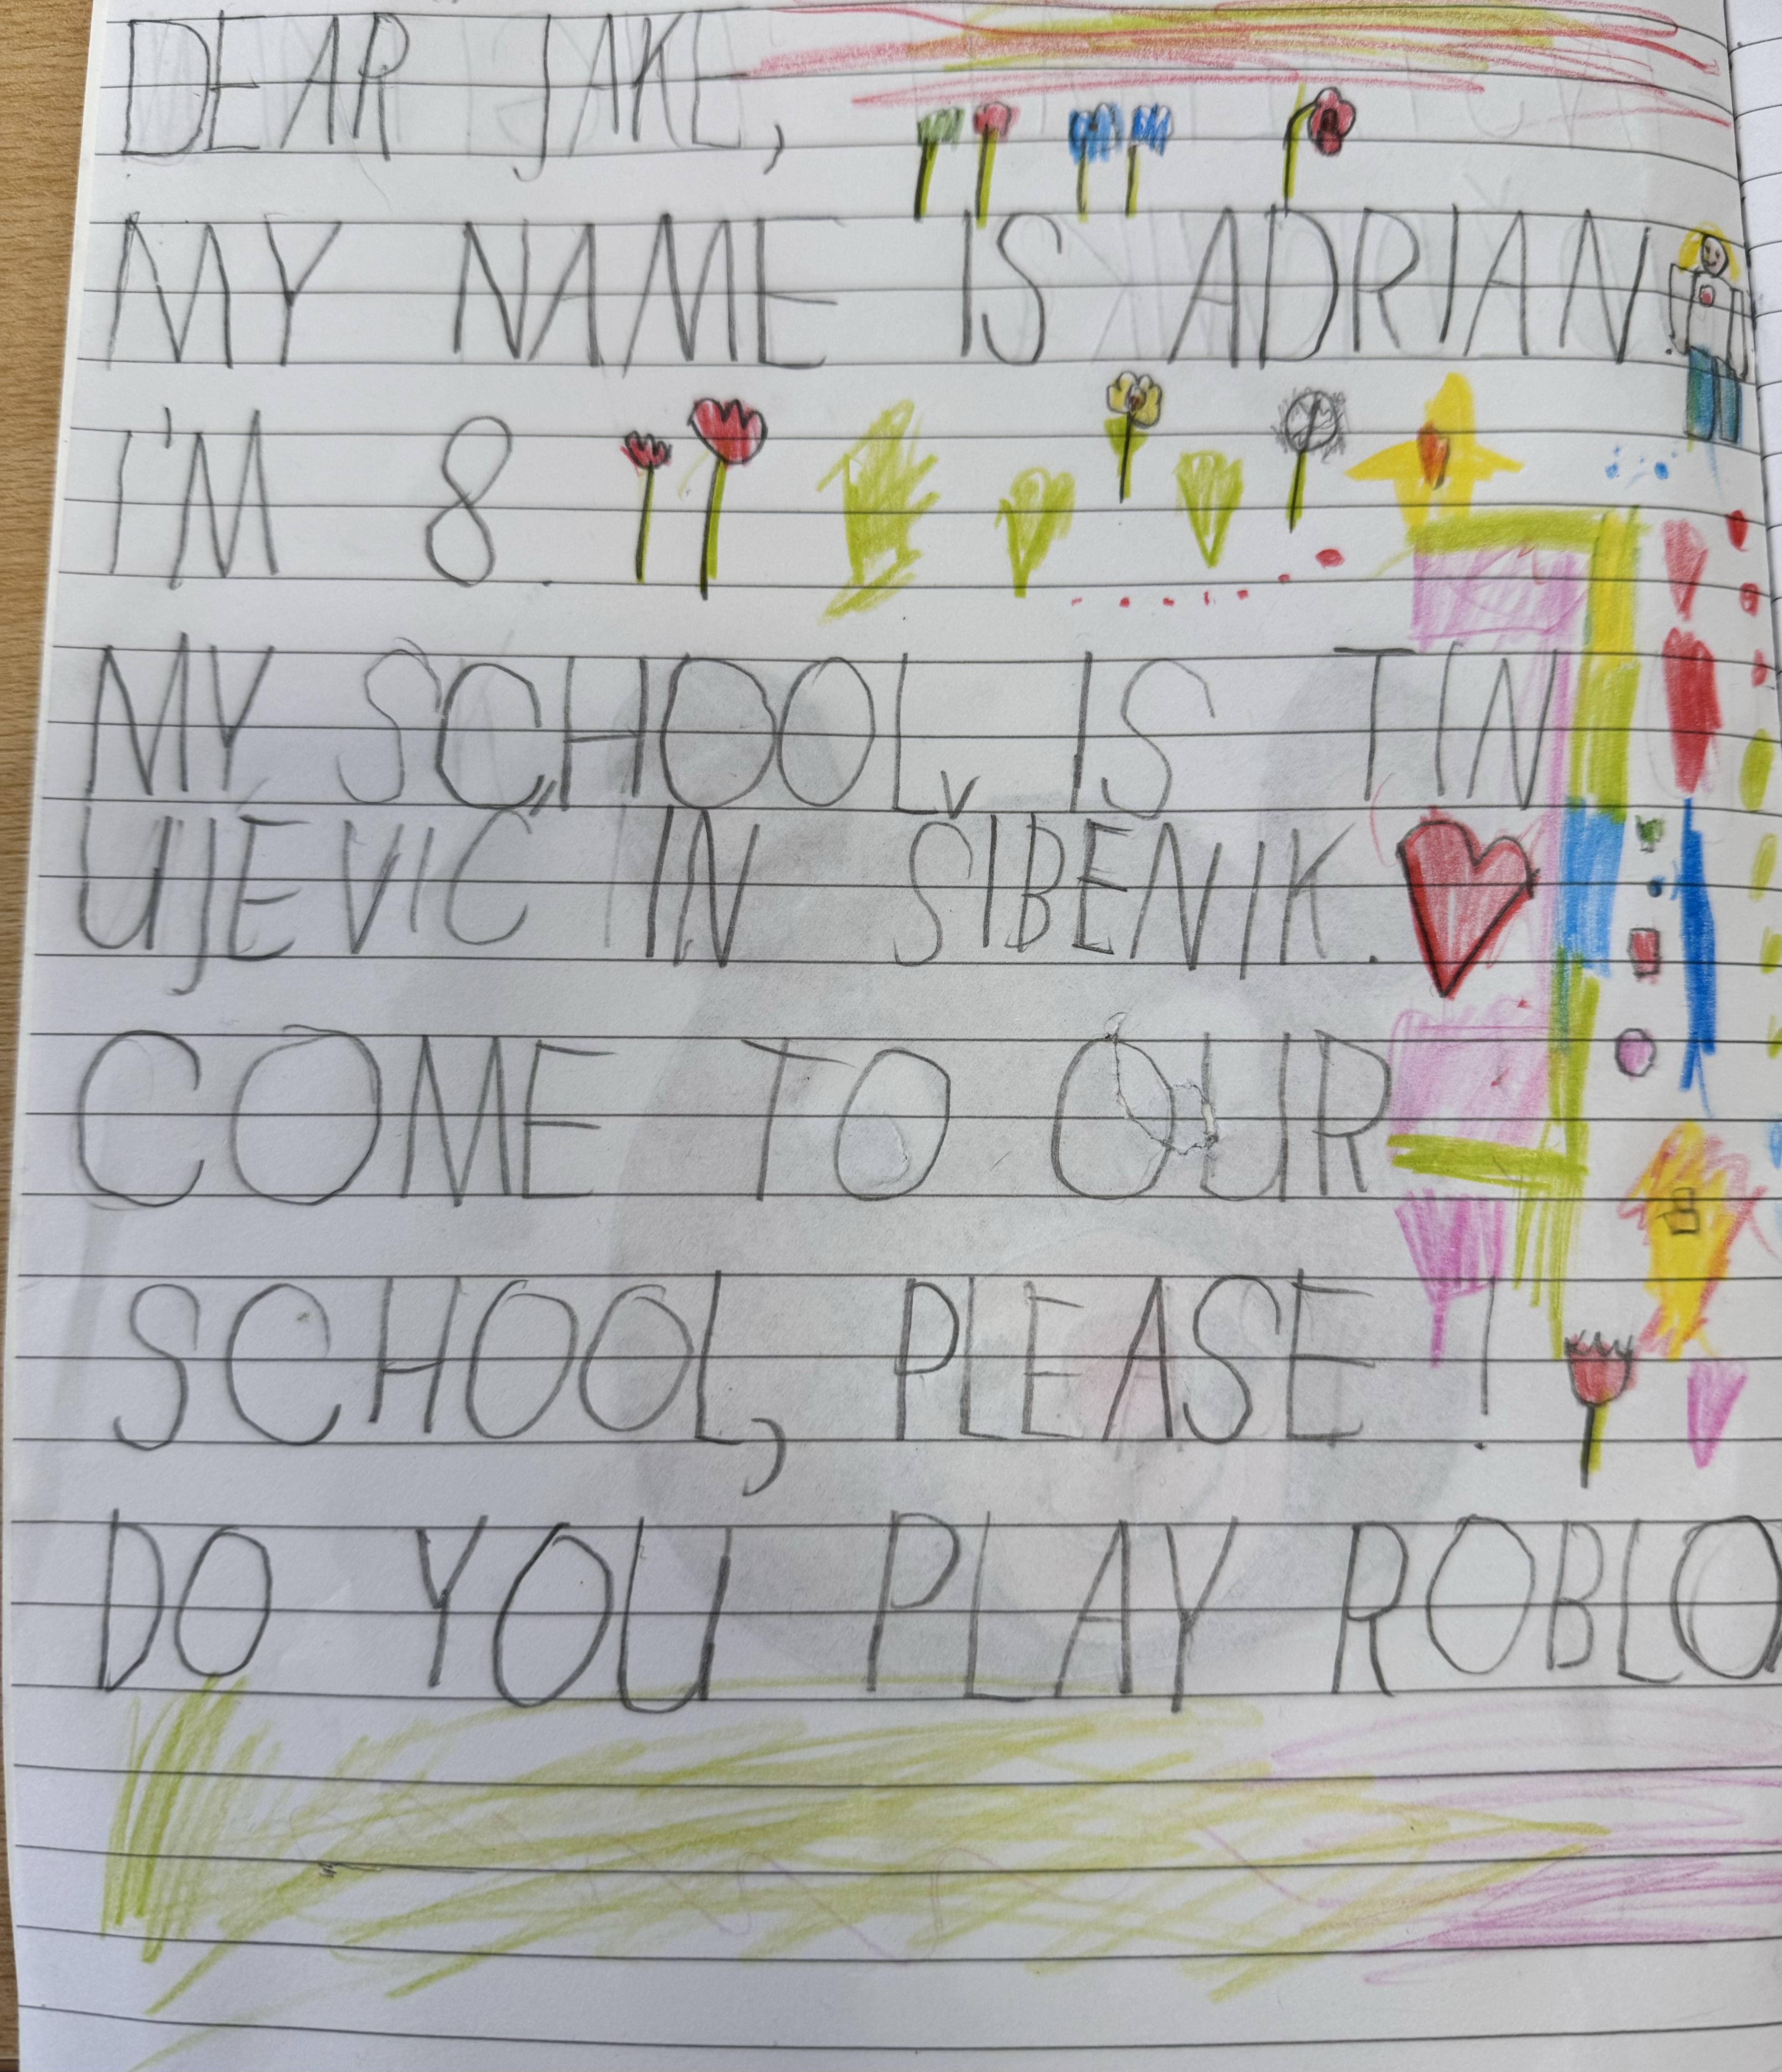 DEAR JAKE,
MY NAME IS ADRIAN.
I'M 8.
MY SCHOOL IS TIN
UJEVIĆ IN ŠIBENIK.
COME TO OUR
SCHOOL, PLEASE!
DO YOU PLAY ROBLO